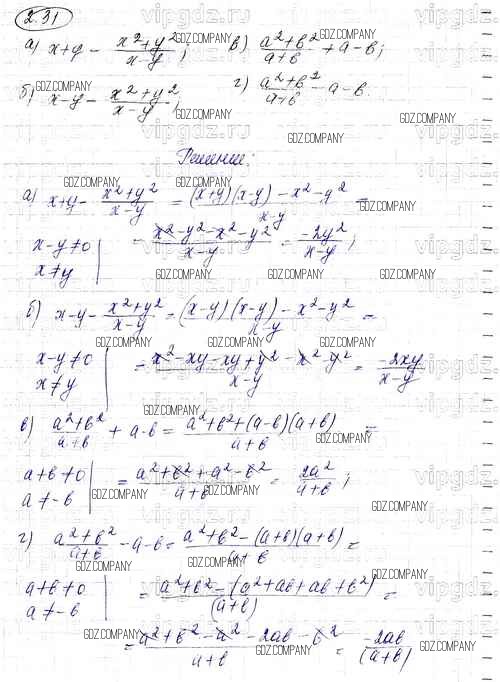 2.31
а) x+y - (x²+y²)/(x-y) ; в) (a²+b²)/(a+b) + a-b;
б) x-y - (x²+y²)/(x-y) ; г) (a²+b²)/(a+b) - a-b.
Решение:
а) x+y - (x²+y²)/(x-y) = ((x+y)(x-y) - x²-y²)/(x-y) =
x-y≠0 = (x²-y²-x²-y²)/(x-y) = (-2y²)/(x-y) ;
x≠y
б) x-y - (x²+y²)/(x-y) = ((x-y)(x-y) - x²-y²)/(x-y) =
x-y≠0 = (x²-xy-xy+y²-x²-y²)/(x-y) = (-2xy)/(x-y)
x≠y
в) (a²+b²)/(a+b) + a-b = (a²+b²+(a-b)(a+b))/(a+b) =
a+b≠0 = (a²+b²+a²-b²)/(a+b) = 2a²/(a+b) ;
a≠-b
г) (a²+b²)/(a+b) - a-b = (a²+b²-(a+b)(a+b))/(a+b) =
a+b≠0 = (a²+b²-(a²+ab+ab+b²))/(a+b) =
a≠-b
= (a²+b²-a²-2ab-b²)/(a+b) = (-2ab)/(a+b)
GDZ.COMPANY
vipgdz.ru